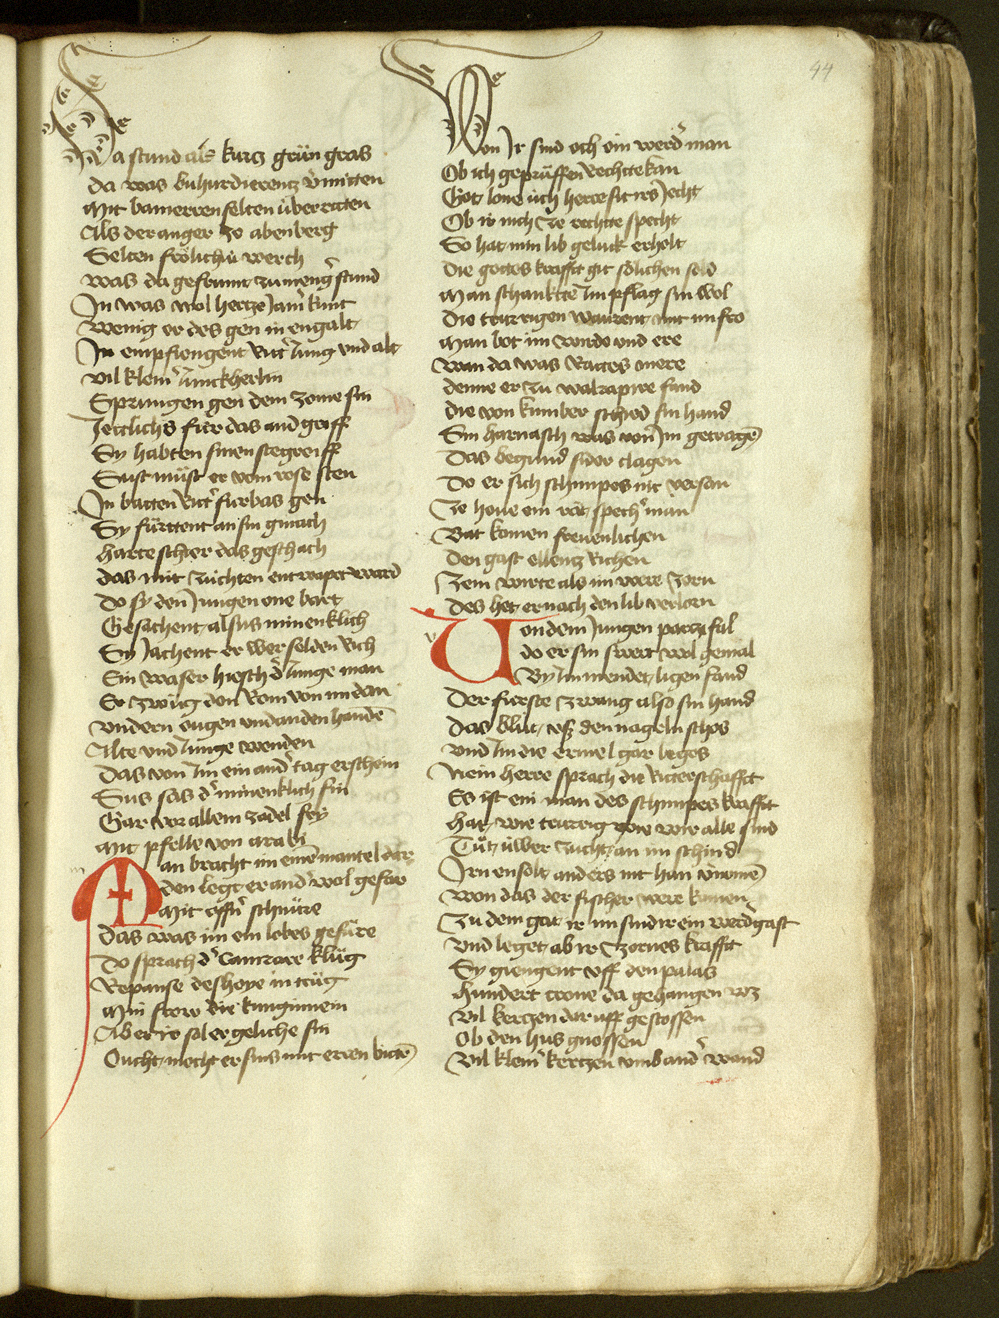 44
Da stund als kurtz grün gras
da was buhurdierentz vermitten
Mit bamerren selten überritten
Als der anger ze abenberg
Selten frölichü werch
was da gefrumt zu meng stund
In was wol hertze Jamer kunt
wenig er des gen in engalt
In empfiengent Ritter Jung vnd alt
vil kleiner Junckherlin
Sprungen gen dem zome sin
Jettlichs für das ander greiff
Sy habten sinen stegreiff
Sust müst er vom rose sten
In batten Ritter fürbas gen
Sy fürttent an sin gmach
harte schier das geschach
das mit züchten entwapet ward
do sy den Jungen one bart
Gesachent alsus minenklich
Sy Jachent er wer selden Rich
Ein waser hiesch der Junge man
Er zwüg den Rom von im dan
vndern ougen vnd an den handen
Alte vnd Junge wenden
Das von Im ein ander tag erschein
Sus sas der minenklich fin
Gar vor allem zadel fry
Mit pfelle von arabi
Man bracht im einen mantel dar
den legt er ander wol gefar
Mit offner schnüre
Das was im ein lobes gefüre
Do sprach der Camrare klüg
Repanse deshoye in trüg
Min frow die künginnein
Ab er ir sol er geliche sin
Oucht mocht er sins mit erren bitten
Won Ir sind och ein werder man
Ob ich geprüffen rechtte kan
Got lone üch herre sit irs Jecht
Ob ir mich ze rechtte specht
So hat min lib gelück erholt
die gottes krafft git sölichen sold
Man schanktte Im pflag sin wol
die trurigen warent mit im fro
Man bot im wirde vnd ere
wan da was Rattes mere
denne er zu walrapire fand
die von kumber schied sin hand
Sin harnasch was von Im getragen
Das begund sider clagen
Do er sich schimpes nit versan
Ze houe ein rät spech man
Bat komen freuenlichen
den gast ellentz Richen
Zem wirte als im were zorn
des het er nach den lib verlorn
Von dem Jungen parczifal
do er sin swert wol gemal
By Im niendert ligen fand
Der fürste zwang also sin hand
das blüt vss den nageln schos
vnd Im die ermel gar begos
Nein herre sprach die Ritterschafft
Es ist ein man des schimpes krafft
hat wie trurig wir alle sind
Tüt üwer zucht an im schind
Irn ensolt anders nit han vernomen
won das der fischer were komen
Zu dem gat ir im sind ir ein werder gast
vnd leget ab ir zornes krafft
Sy giengent vff den palas
hundert crone da gehangen was
vil kertzen dar vff gestossen
ob den hus gnossen
vil kleiner kertzen vmb ander wand